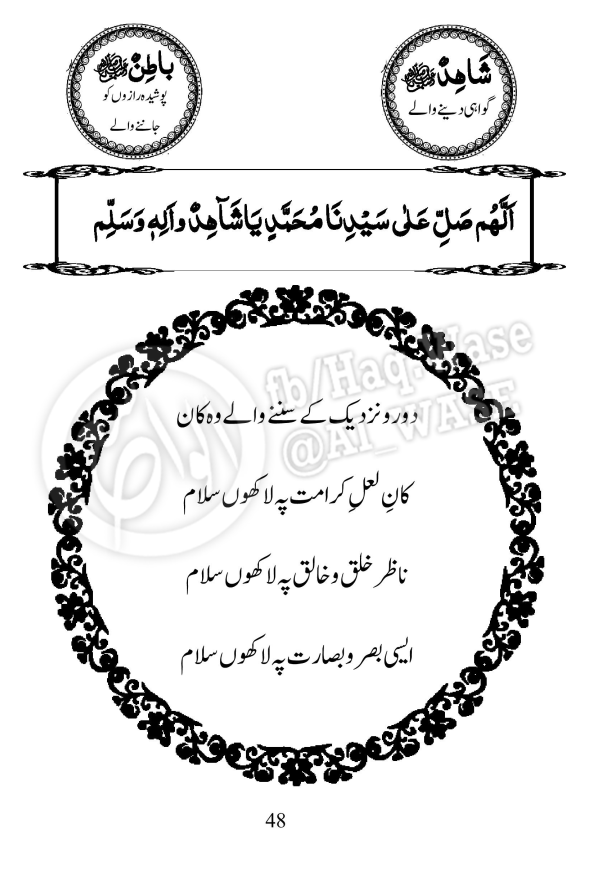 شَاهِدٌ ﷺ
گواہی دینے والے
باطِنٌ ﷺ
پوشیدہ رازوں کو
جاننے والے
اَللّٰهُم صَلِّ عَلٰی سَيِّدِنَا مُحَمَّدٍ يَا شَآهِدٌ وآلِهٖ وَسَلِّم
دور و نزدیک کے سننے والے وہ کان
کانِ لعلِ کرامت پہ لاکھوں سلام
ناظر خلق و خالق پہ لاکھوں سلام
ایسی بصر و بصارت پہ لاکھوں سلام
fb/Haq.Wase
@AI_WASE
48